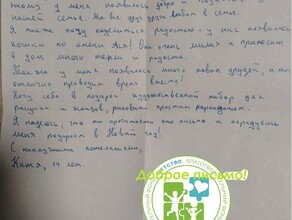 этому у меня появилось добро и
нашей семье. Мы все друг друга любим в семье.
Я также хочу поделиться радостью - у нас появилась
кошка по имени Ася! Она очень милая и приносит
в дом много тепла и радости.
Также у меня появилось много новых друзей, и мы
отлично проводим время вместе!
Хочу себе в подарок художественный набор для
рисования простым карандашом.
Я надеюсь, что ты прочитаешь это письмо и порадуешь
меня подарком в Новый год!
С наилучшими пожеланиями,
Катя, 14 лет.
Доброе письмо!